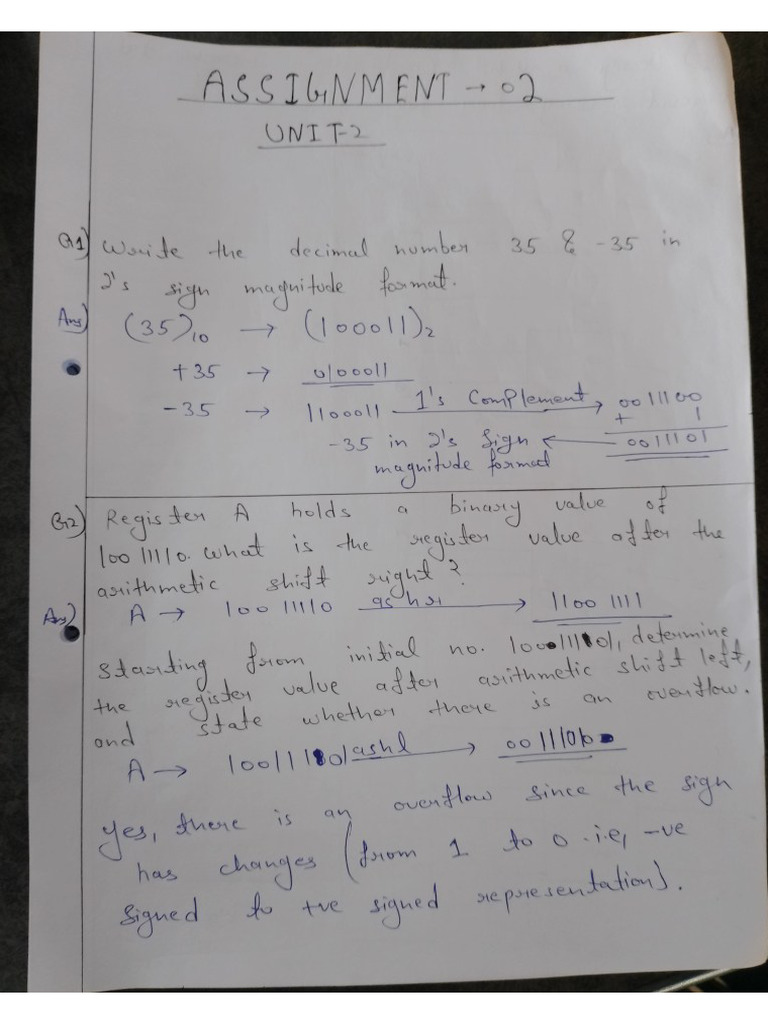 ASSIGNMENT → 02
UNIT-2
Q1) Write the decimal number 35 & -35 in
2's sign magnitude format.
Ans) (35)10 → (100011)2
+35 → 0100011
-35 → 1100011 1's Complement → 0011100
+ 1
-35 in 2's Sign ← 0011101
magnitude formed
Q2) Register A holds a binary value of
10011110. What is the register value after the
arithmetic shift right?
Ans) A → 10011110 ashr → 11001111
Starting from initial no. determine
the register value after arithmetic shift left,
and state whether there is an overflow.
A → ashl →
Yes, there is an overflow since the sign
has changes (from 1 to 0 i.e, -ve
signed to +ve signed representation).